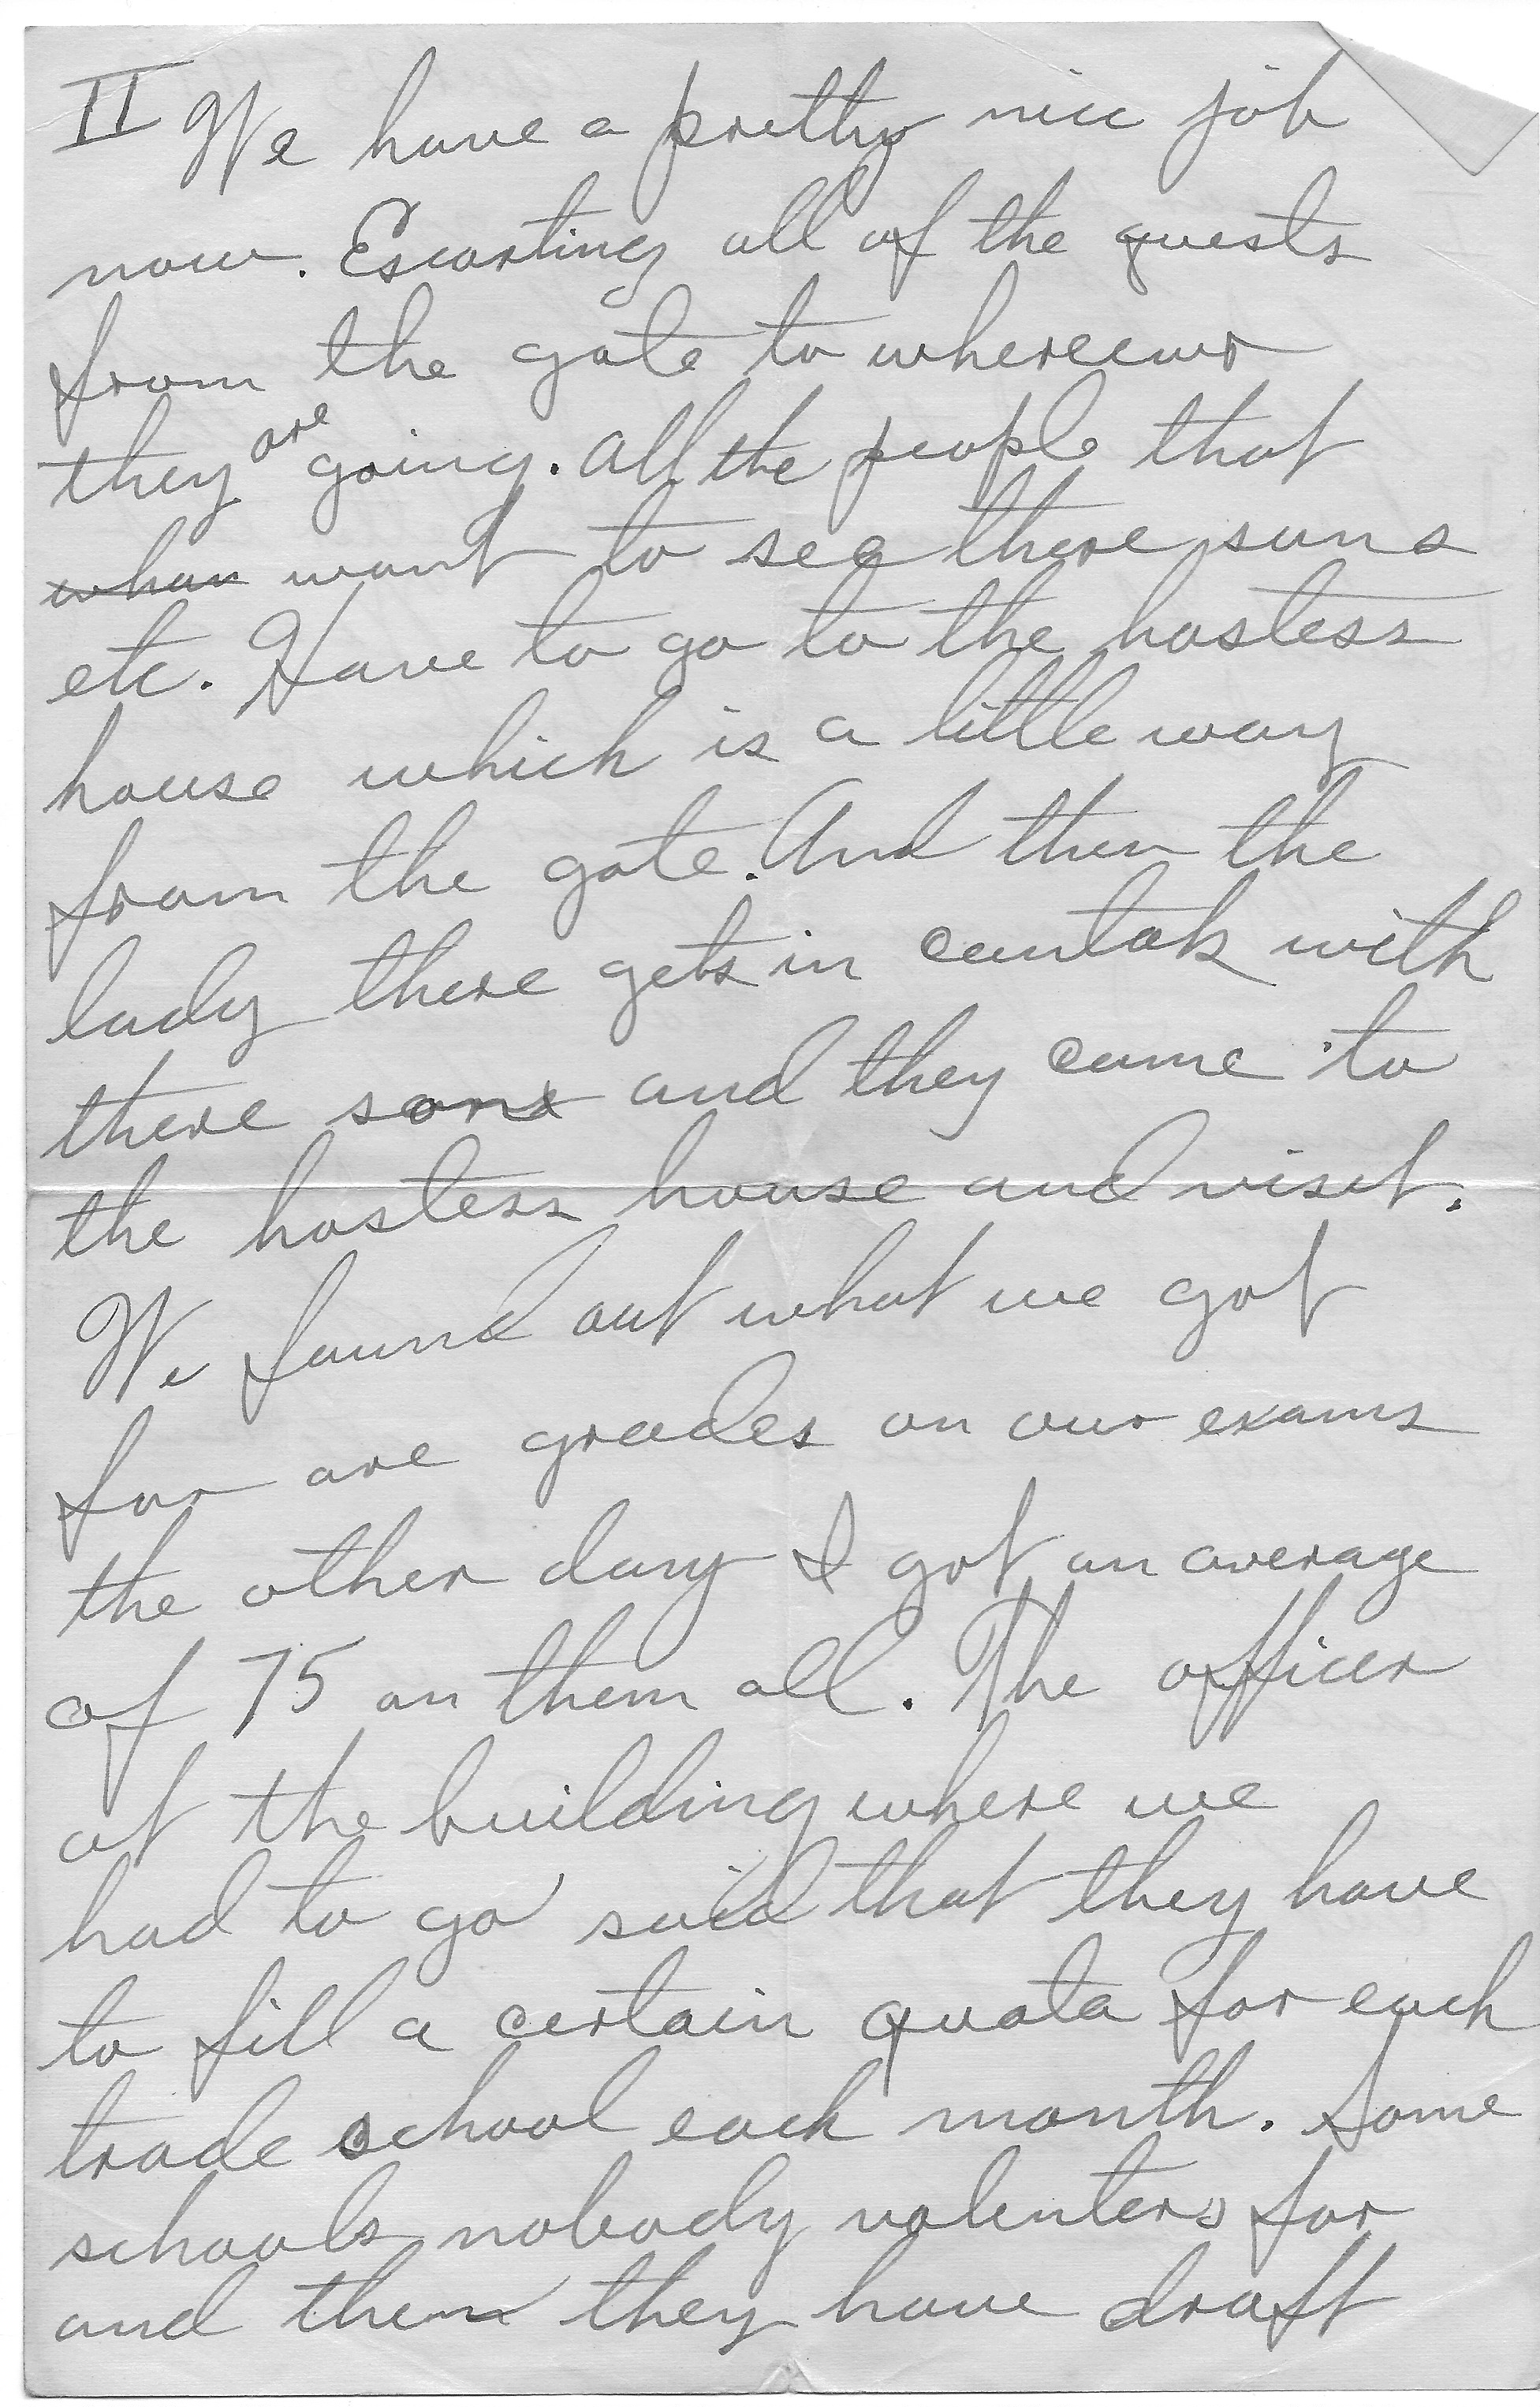 II We have a pretty nice job
now. Escorting all of the guests
from the gate to whereever
they are going. All the people that
whan want to see there sons
etc. Have to go to the hostess
house which is a little way
from the gate. And then the
lady there gets in contak with
there sons and they come to
the hostess house and visit.
We found out what we got
for are grades on our exams
the other day I got an average
of 75 on them all. The officer
at the building where we
had to go said that they have
to fill a certain quota for each
trade school each month. Some
schools nobody volenters for
and then they have draft